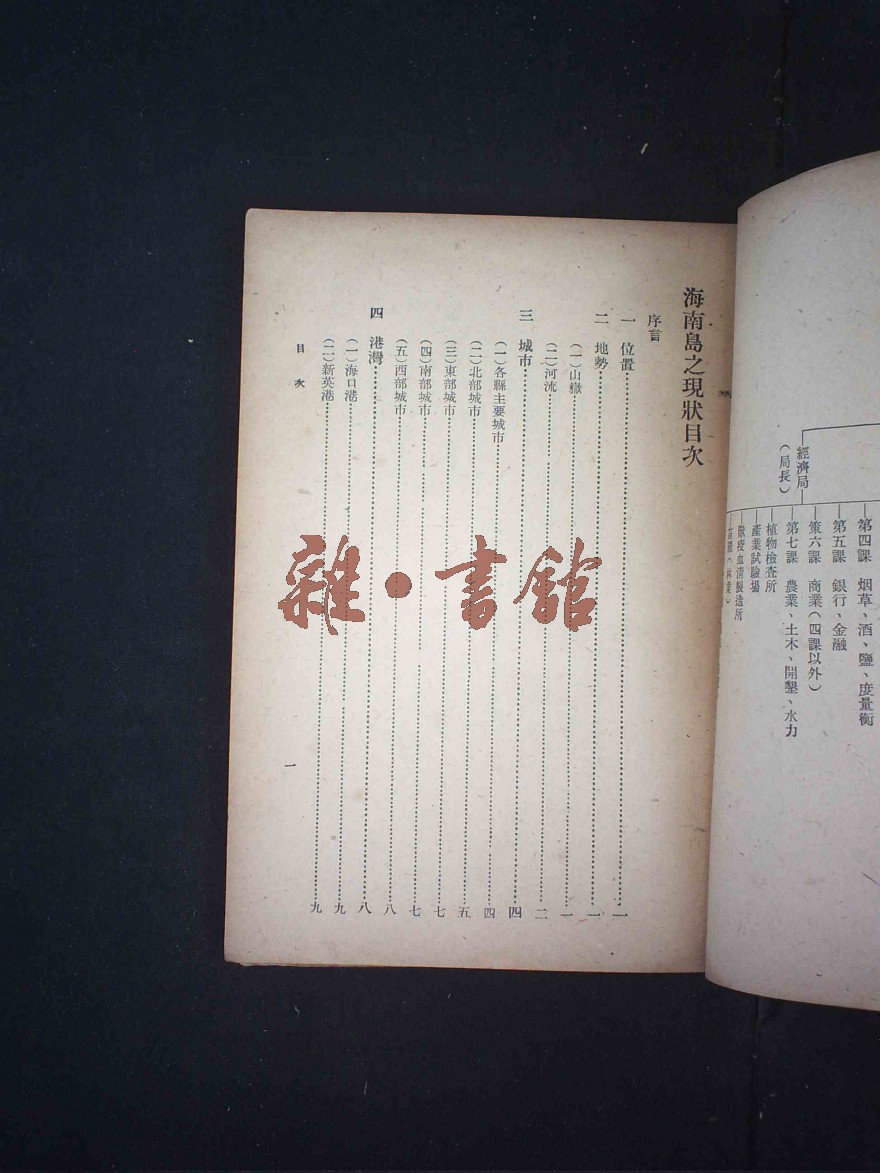 經濟局
（局長）
第四課　烟草、酒、鹽、度量衡
第五課　銀行、金融
第六課　商業（四課以外）
第七課　農業、土木、開墾、水力
植物檢查所
產業試驗場
獸疫血清製造所
海南島之現狀目次
序言
一　位置……一
二　地勢……一
（一）山嶽……一
（二）河流……二
三　城市……四
（一）各縣主要城市……四
（二）北部城市……五
（三）東部城市……七
（四）南部城市……七
（五）西部城市……八
四　港灣……八
（一）海口港……九
（二）新英港……九
目次
一
雜·書館